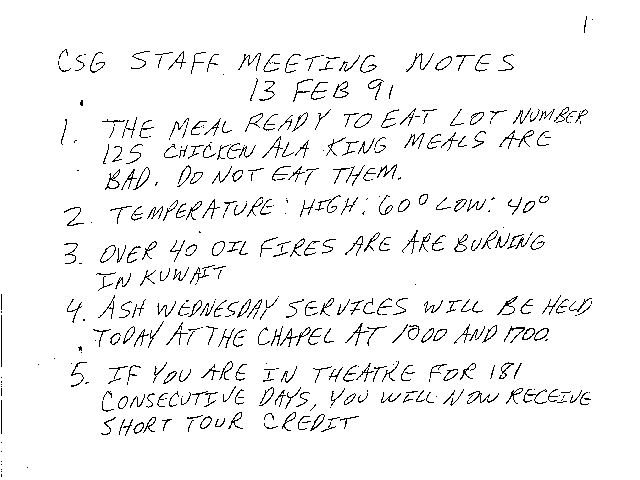 1
CSG STAFF MEETING NOTES
13 FEB 91
1. THE MEAL READY TO EAT LOT NUMBER
125 CHICKEN ALA KING MEALS ARE
BAD. DO NOT EAT THEM.
2. TEMPERATURE: HIGH: 60° LOW: 40°
3. OVER 40 OIL FIRES ARE ARE BURNING
IN KUWAIT
4. ASH WEDNESDAY SERVICES WILL BE HELD
TODAY AT THE CHAPEL AT 1000 AND 1700.
5. IF YOU ARE IN THEATRE FOR 181
CONSECUTIVE DAYS, YOU WILL NOW RECEIVE
SHORT TOUR CREDIT